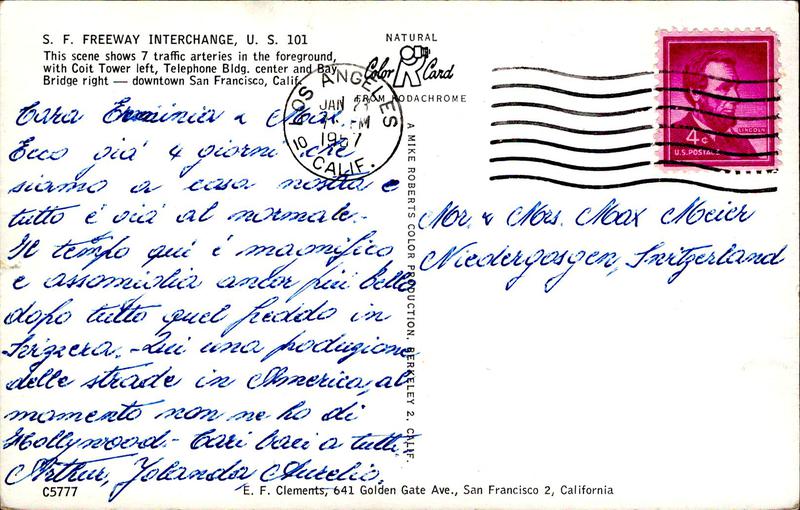 S. F. FREEWAY INTERCHANGE, U. S. 101
This scene shows 7 traffic arteries in the foreground,
with Coit Tower left, Telephone Bldg. center and Bay
Bridge right — downtown San Francisco, Calif.
NATURAL
Color Card
FROM KODACHROME
LOS ANGELES
JAN
PM
1957
10
CALIF.
4c
LINCOLN
U.S. POSTAGE
Cara Erminia & Max.
Ecco già 4 giorni che
siamo a casa nostra e
tutto è già al normale.-
Il tempo qui è magnifico
e assomiglia ancor più bello
dopo tutto quel freddo in
Svizzera.- Qui una produzione
delle strade in America, al
momento non ne ho di
Hollywood.- Cari baci a tutti,
Arthur, Jolanda Aurelio.
A MIKE ROBERTS COLOR PRODUCTION, BERKELEY 2, CALIF.
Mr. & Mrs. Max Meier
Niedergosgen, Switzerland
C5777
E. F. Clements, 641 Golden Gate Ave., San Francisco 2, California